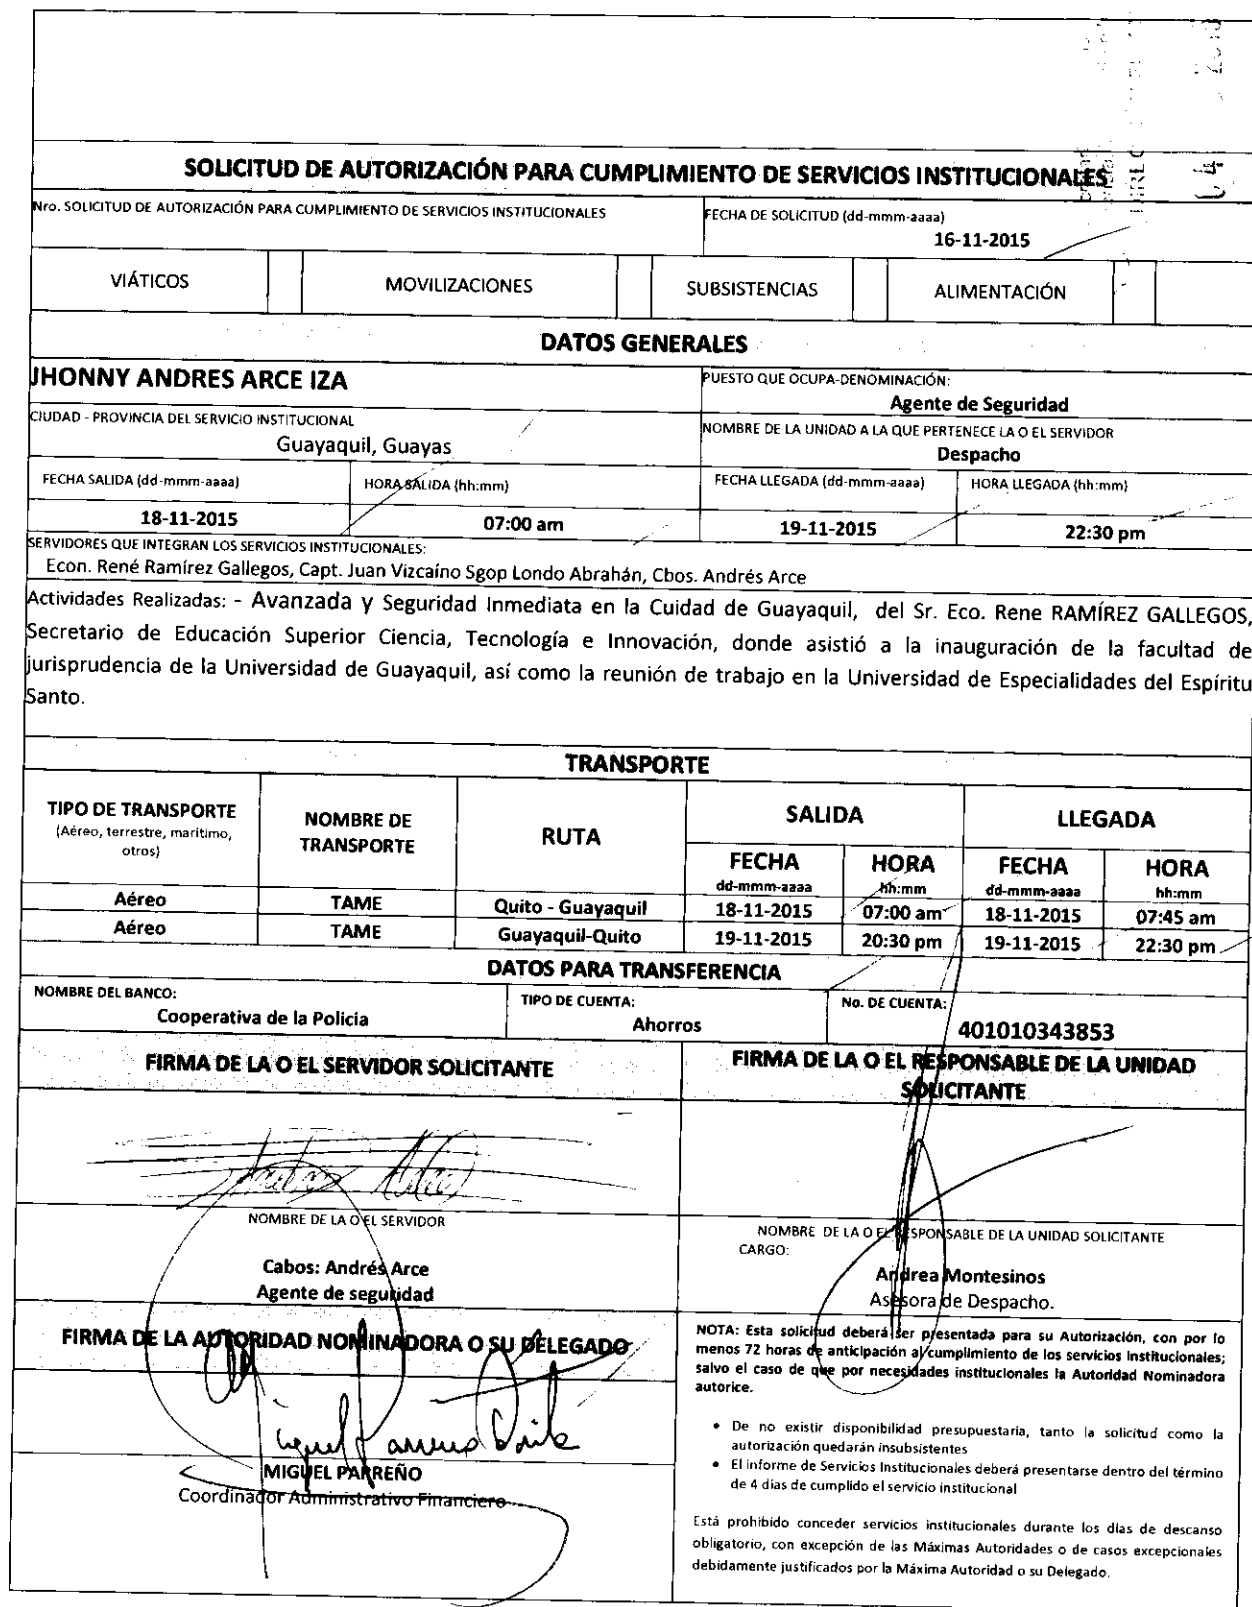 SOLICITUD DE AUTORIZACIÓN PARA CUMPLIMIENTO DE SERVICIOS INSTITUCIONALES
Nro. SOLICITUD DE AUTORIZACIÓN PARA CUMPLIMIENTO DE SERVICIOS INSTITUCIONALES
FECHA DE SOLICITUD (dd-mmm-aaaa)
16-11-2015
VIÁTICOS MOVILIZACIONES SUBSISTENCIAS ALIMENTACIÓN
DATOS GENERALES
JHONNY ANDRES ARCE IZA
PUESTO QUE OCUPA-DENOMINACIÓN:
Agente de Seguridad
CIUDAD - PROVINCIA DEL SERVICIO INSTITUCIONAL
Guayaquil, Guayas
NOMBRE DE LA UNIDAD A LA QUE PERTENECE LA O EL SERVIDOR
Despacho
FECHA SALIDA (dd-mmm-aaaa) HORA SALIDA (hh:mm) FECHA LLEGADA (dd-mmm-aaaa) HORA LLEGADA (hh:mm)
18-11-2015 07:00 am 19-11-2015 22:30 pm
SERVIDORES QUE INTEGRAN LOS SERVICIOS INSTITUCIONALES:
Econ. René Ramírez Gallegos, Capt. Juan Vizcaíno Sgop Londo Abrahán, Cbos. Andrés Arce
Actividades Realizadas: - Avanzada y Seguridad Inmediata en la Cuidad de Guayaquil, del Sr. Eco. Rene RAMÍREZ GALLEGOS,
Secretario de Educación Superior Ciencia, Tecnología e Innovación, donde asistió a la inauguración de la facultad de
jurisprudencia de la Universidad de Guayaquil, así como la reunión de trabajo en la Universidad de Especialidades del Espíritu
Santo.
TRANSPORTE
TIPO DE TRANSPORTE
(Aéreo, terrestre, marítimo,
otros)
NOMBRE DE
TRANSPORTE
RUTA
SALIDA LLEGADA
FECHA HORA FECHA HORA
dd-mmm-aaaa hh:mm dd-mmm-aaaa hh:mm
Aéreo TAME Quito - Guayaquil 18-11-2015 07:00 am 18-11-2015 07:45 am
Aéreo TAME Guayaquil-Quito 19-11-2015 20:30 pm 19-11-2015 22:30 pm
DATOS PARA TRANSFERENCIA
NOMBRE DEL BANCO:
Cooperativa de la Policia
TIPO DE CUENTA:
Ahorros
No. DE CUENTA:
401010343853
FIRMA DE LA O EL SERVIDOR SOLICITANTE
FIRMA DE LA O EL RESPONSABLE DE LA UNIDAD
SOLICITANTE
NOMBRE DE LA O EL SERVIDOR
Cabos: Andrés Arce
Agente de seguridad
NOMBRE DE LA O EL RESPONSABLE DE LA UNIDAD SOLICITANTE
CARGO:
Andrea Montesinos
Asesora de Despacho.
FIRMA DE LA AUTORIDAD NOMINADORA O SU DELEGADO
MIGUEL PARREÑO
Coordinador Administrativo Financiero
NOTA: Esta solicitud deberá ser presentada para su Autorización, con por lo
menos 72 horas de anticipación al cumplimiento de los servicios institucionales;
salvo el caso de que por necesidades institucionales la Autoridad Nominadora
autorice.
• De no existir disponibilidad presupuestaria, tanto la solicitud como la
autorización quedarán insubsistentes
• El informe de Servicios Institucionales deberá presentarse dentro del término
de 4 dias de cumplido el servicio institucional
Está prohibido conceder servicios institucionales durante los días de descanso
obligatorio, con excepción de las Máximas Autoridades o de casos excepcionales
debidamente justificados por la Máxima Autoridad o su Delegado.